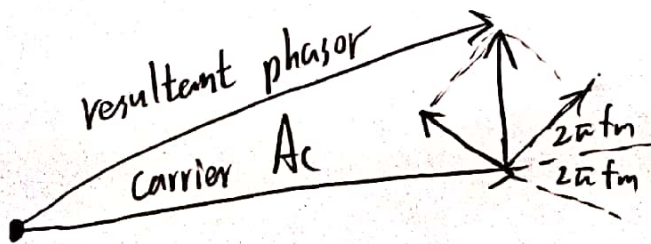 resultant phasor
carrier Ac
2πfm
2πfm